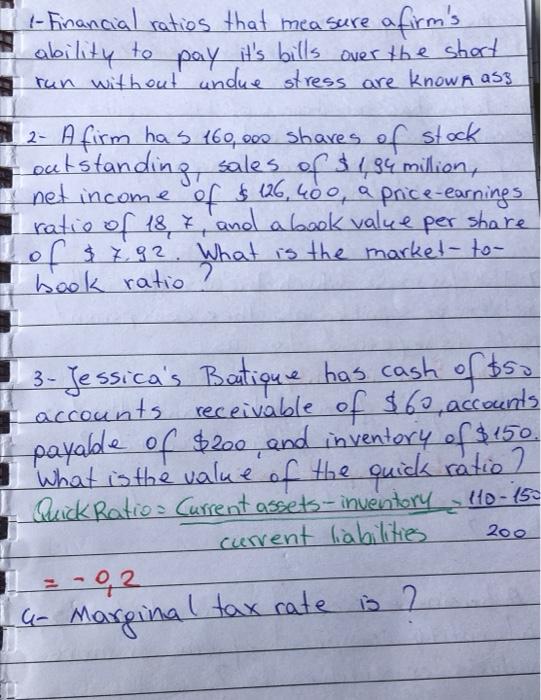 1- Financial ratios that measure a firm's
ability to pay it's bills over the short
run without undue stress are known ass
2- A firm has 160,000 shares of stock
outstanding, sales of $ 1,94 million,
net income of $ 126,400, a price-earnings
ratio of 18,7, and a book value per share
of $ 7,92. What is the market-to-
book ratio?
3- Jessica's Boutique has cash of $50
accounts receivable of $60, accounts
payable of $200, and inventory of $150.
What is the value of the quick ratio?
Quick Ratio = Current assets - inventory = 110-150
current liabilities 200
= - 0,2
4- Marginal tax rate is ?